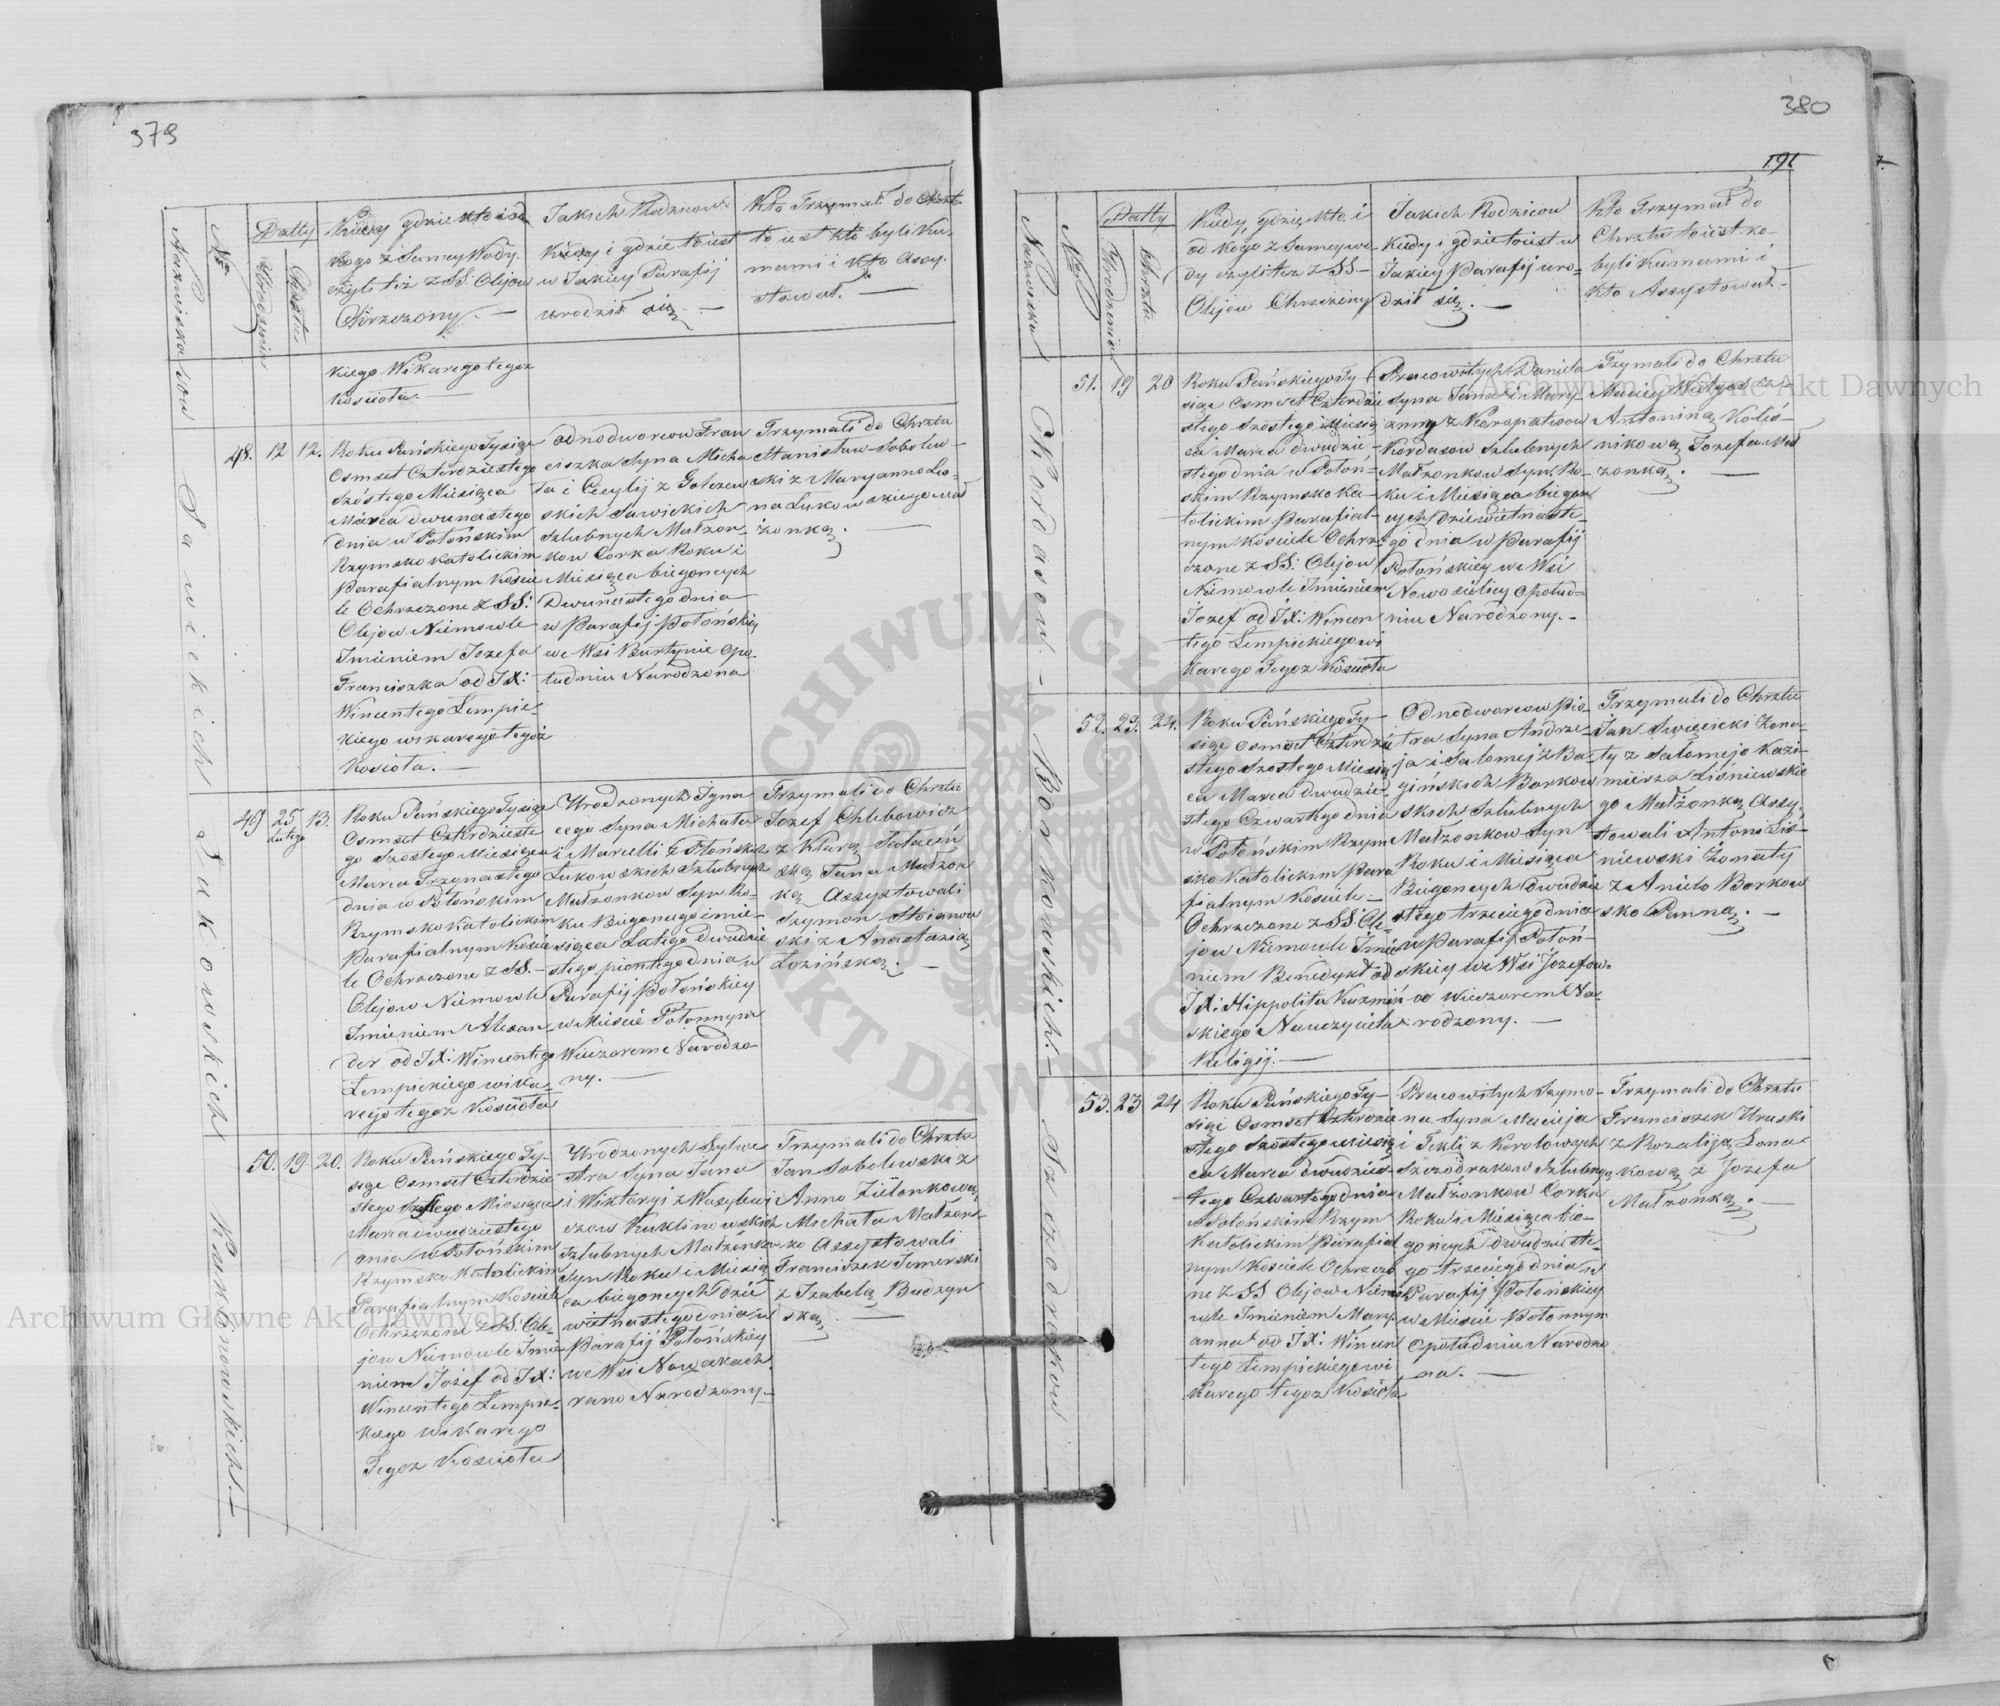 379
Nazwiska
Nr
Datty
Urodzenia
Chrztu
Kiedy gdzie kto i od
kogo z Samey Wody
czyli też z SS: Olejow
Chrzczony. —
Jakich Rodzicow
Kiedy i gdzie to iest
w Jakiey Parafij
urodził się —
Kto Trzymał do Chrztu
to iest kto byli Ku-
mami i kto Assy-
stował. —
kiego Wikarego tegoz
Koscioła. —
Sawickich
48. 12 12.
Roku Pańskiego Tysiąc
Osmset Czterdziestego
Szóstego Miesiąca
Marca dwunastego
dnia w Połońskim
Rzymsko Katolickim
Parafialnym Koscie
le Ochrzczone z SS:
Olejow Niemowle
Imieniem Jozefa
Franciszka od JX:
Wincentego Lempic-
kiego wikarego tegoż
Kosciola. —
Odnodworcow Fran
ciszka Syna Micha
ła i Cecylij z Golczew
skich Sawickich
Szlubnych Małzon-
kow Corka Roku i
Miesiąca biegoncych
Dwunastego dnia
w Parafij Połońskiey
we Wsi Burtynie opo-
łudniu Narodzona
Trzymali do Chrztu
Stanisław Sobolew-
ski z Maryanno Leo-
na Lukowskiego Mał
żonką. —
Łukowskich
49 25 13.
Lutego
Roku Pańskiego Tysiąc
Osmset Czterdzieste
go Szostego Miesiąca
Marca Trzynastego
dnia w Połońskim
Rzymsko Katolickim
Parafialnym Koscie
le Ochrzczone z SS. —
Olejow Niemowle
Imieniem Alexan
der od JX: Wincentego
Lempickiego wika-
rego tegoz Kościoła
Urodzonych Igna
cego Syna Michała
i Marcelli z Płońskich
Łukowskich Szlubnych
Małżonkow Syn Ro-
ku Biegoncego i mie-
siąca Lutego dwudzie
stego piontego dnia w
Parafij Połońskiey
w Mieście Połonnym
Wieczorem Narodzo
ny. —
Trzymali do Chrztu
Jozef Chlebowicz
z Klarą
ską Jana Małżon
ką Assystowali
Szymon Stoianow
ski z Anastazią
Łozińską. —
Kuklinowskich. —
50. 19 20.
Roku Pańskiego Ty-
siąc Osmset Czterdzie
stego Szostego Miesiąca
Marca dwudziestego
dnia w Połońskim
Rzymsko Katolickim
Parafialnym Kosciele
Ochrzczone z SS: Ole-
jow Niemowle Imie
niem Jozef od JX:
Wincentego Lempic-
kiego wikarego
Tegoz Kosciołu
Urodzonych Sylwe
stra Syna Jana
i Wiktoryi z Wasylewi
czow Kuklinowskich
Szlubnych Małżonkow
Syn Roku i Miesią
ca biegoncych dzie
wietnastego dnia w
Parafij Połońskiey
we Wsi Nowakach
rano Narodzony —
Trzymali do Chrztu
Jan Sobolewski z
Anno Zielonkową
Michała Małżon-
ko Assystowali
Franciszek Jemerski
z Izabelą Budzyn
ską —
380
191
Nazwiska
Nr
Datty
Urodzenia
Chrztu
Kiedy, gdzie, kto i
od kogo z Samey wo-
dy czyli tez z SS —
Olejow Chrzczony
Jakich Rodzicow
Kiedy i gdzie to iest w
Jakiey Parafij uro-
dził się. —
Kto Trzymał do
Chrztu to iest ko-
byli Kumami i
kto Assystował. —
Kordasow. —
51. 19 20
Roku Pańskiego Ty-
siąc Osmset Czterdzie
stego Szostego Miesią
ca Marca dwudzie-
stego dnia w Połoń-
skim Rzymsko Ka-
tolickim Parafial-
nym Kosciele Ochrz-
czone z SS: Olejow
Niemowle Imieniem
Jozef od JX: Wincen
tego Lempickiego wi
karego Tegoz Kościoła
Pracowitych Daniela
Syna Jana i Mary-
anny z Karopatwow
Kordasow Szlubnych
Małzonkow Syn. Ro-
ku i Miesiąca biegon
cych Dziewietnaste-
go dnia w Parafij
Połońskiey we Wsi
Nowosielicy opołud-
niu Narodzony. —
Trzymali do Chrztu
Maciey
Antoniną Koliś-
nikową Jozefa Mał
zonką. —
Borkowskich. —
52. 23. 24.
Roku Pańskiego Ty-
siąc Osmset Czterdzie
stego Szostego Miesią
ca Marca dwudzie-
stego Czwartego dnia
w Połońskim Rzym
sko Katolickim Para
fialnym Kosciele —
Ochrzczone z SS. Ole-
jow Niemowle Imie
niem Benedykt od
JX: Hippolita Kuzmiń
skiego Nauczyciela
Religij. —
Odnodworcow Pio-
tra Syna Andrze-
ja i Salomej z Ba-
gińskich Borkow
skich Szlubnych
Małzonkow Syn
Roku i Miesiąca
Biegoncych dwudzie
stego trzeciego dnia
w Parafij Połoń-
skiey we Wsi Jozefow-
ce wieczorem Na-
rodzony. —
Trzymali do Chrztu
Jan Swięcicki Zona-
ty z Salomejo Kazi-
mierza Liśniewskie
go Małżonką Assy-
stowali Antoni Liś-
niewski Żonaty
z Anielo Borkow
sko Panną. —
Szczodrakow
53. 23 24
Roku Pańskiego Ty-
siąc Osmset Czterdzie
stego Szostego miesią
ca Marca dwudzies-
tego Czwartego dnia
w Połońskim Rzym
Katolickim Parafial
nym Kosciele Ochrzczo
ne z SS Olejow Niemo
wle Imieniem Mary-
anna od JX: Wincen
tego Lempickiego wi
karego tegoz Kosciola
Pracowitych Szymo-
na Syna Macieja
i Tekli z Korolowych
Szczodrakow Szlubny
Małżonkow Corka
Roku i Miesiąca bie-
goncych dwudzieste-
go trzeciego dnia w
Parafij Połońskiey
w Miescie Połonnym
Opołudniu Narodzo
na. —
Trzymali do Chrztu
Franciszek Uruski
z Rozaliją Lona-
kową z Jozefa
Małzonką. —
Archiwum Główne Akt Dawnych
Archiwum Główne Akt Dawnych
ARCHIWUM GŁÓWNE AKT DAWNYCH